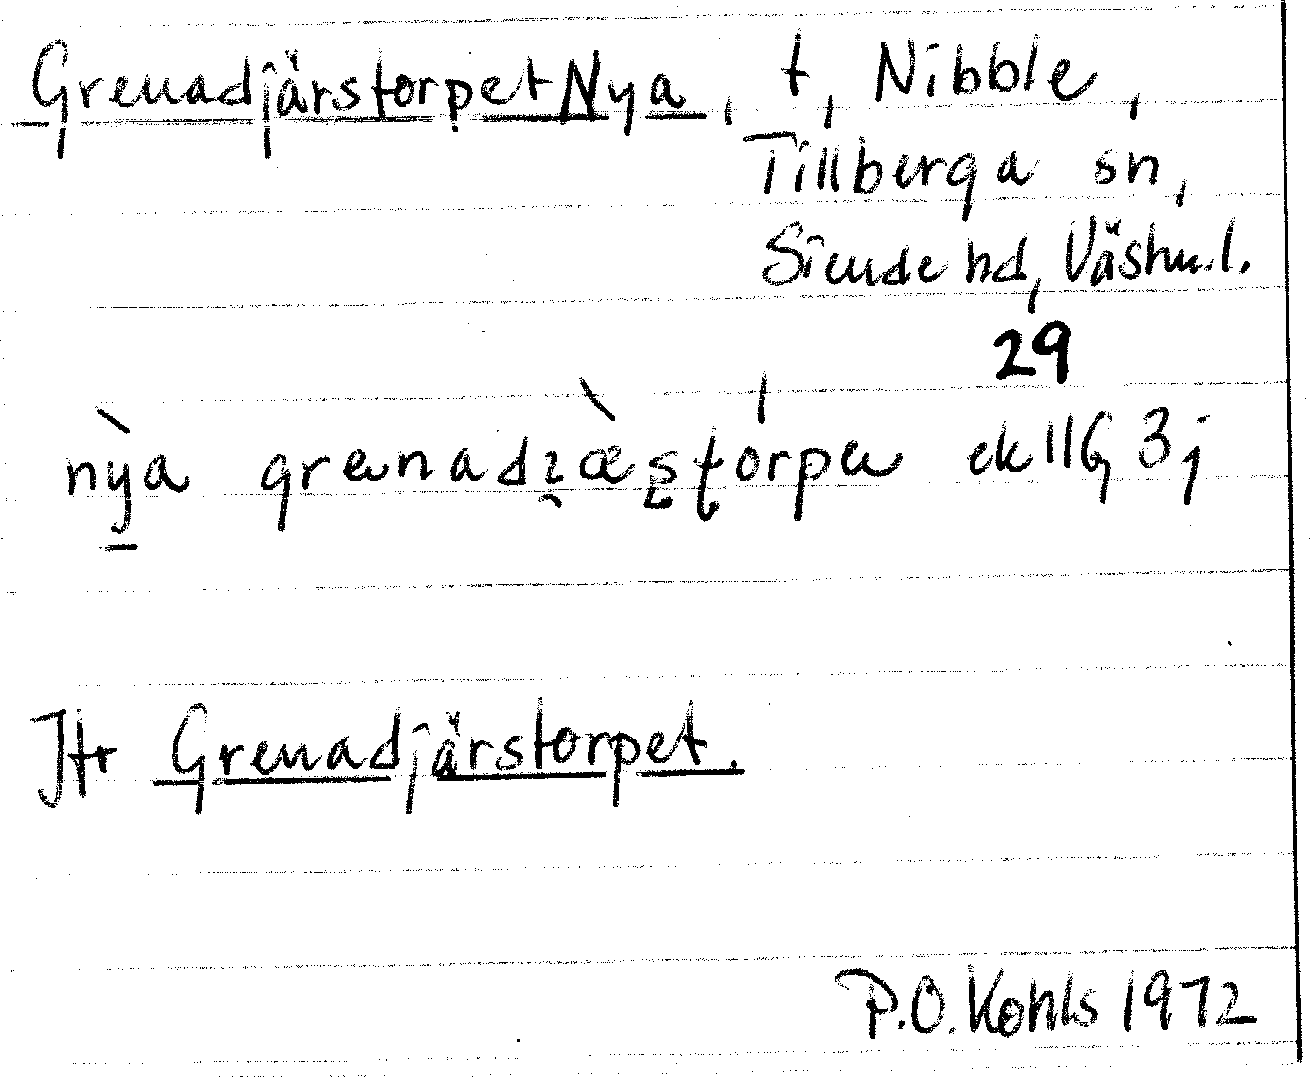 Grenadjärstorpet Nya, t, Nibble,
Tillberga sn,
Siende hd, Västm. l.
29
nya grenadʒæstorpa ek 11G 3j
Jfr Grenadjärstorpet.
P.O. Kohls 1972